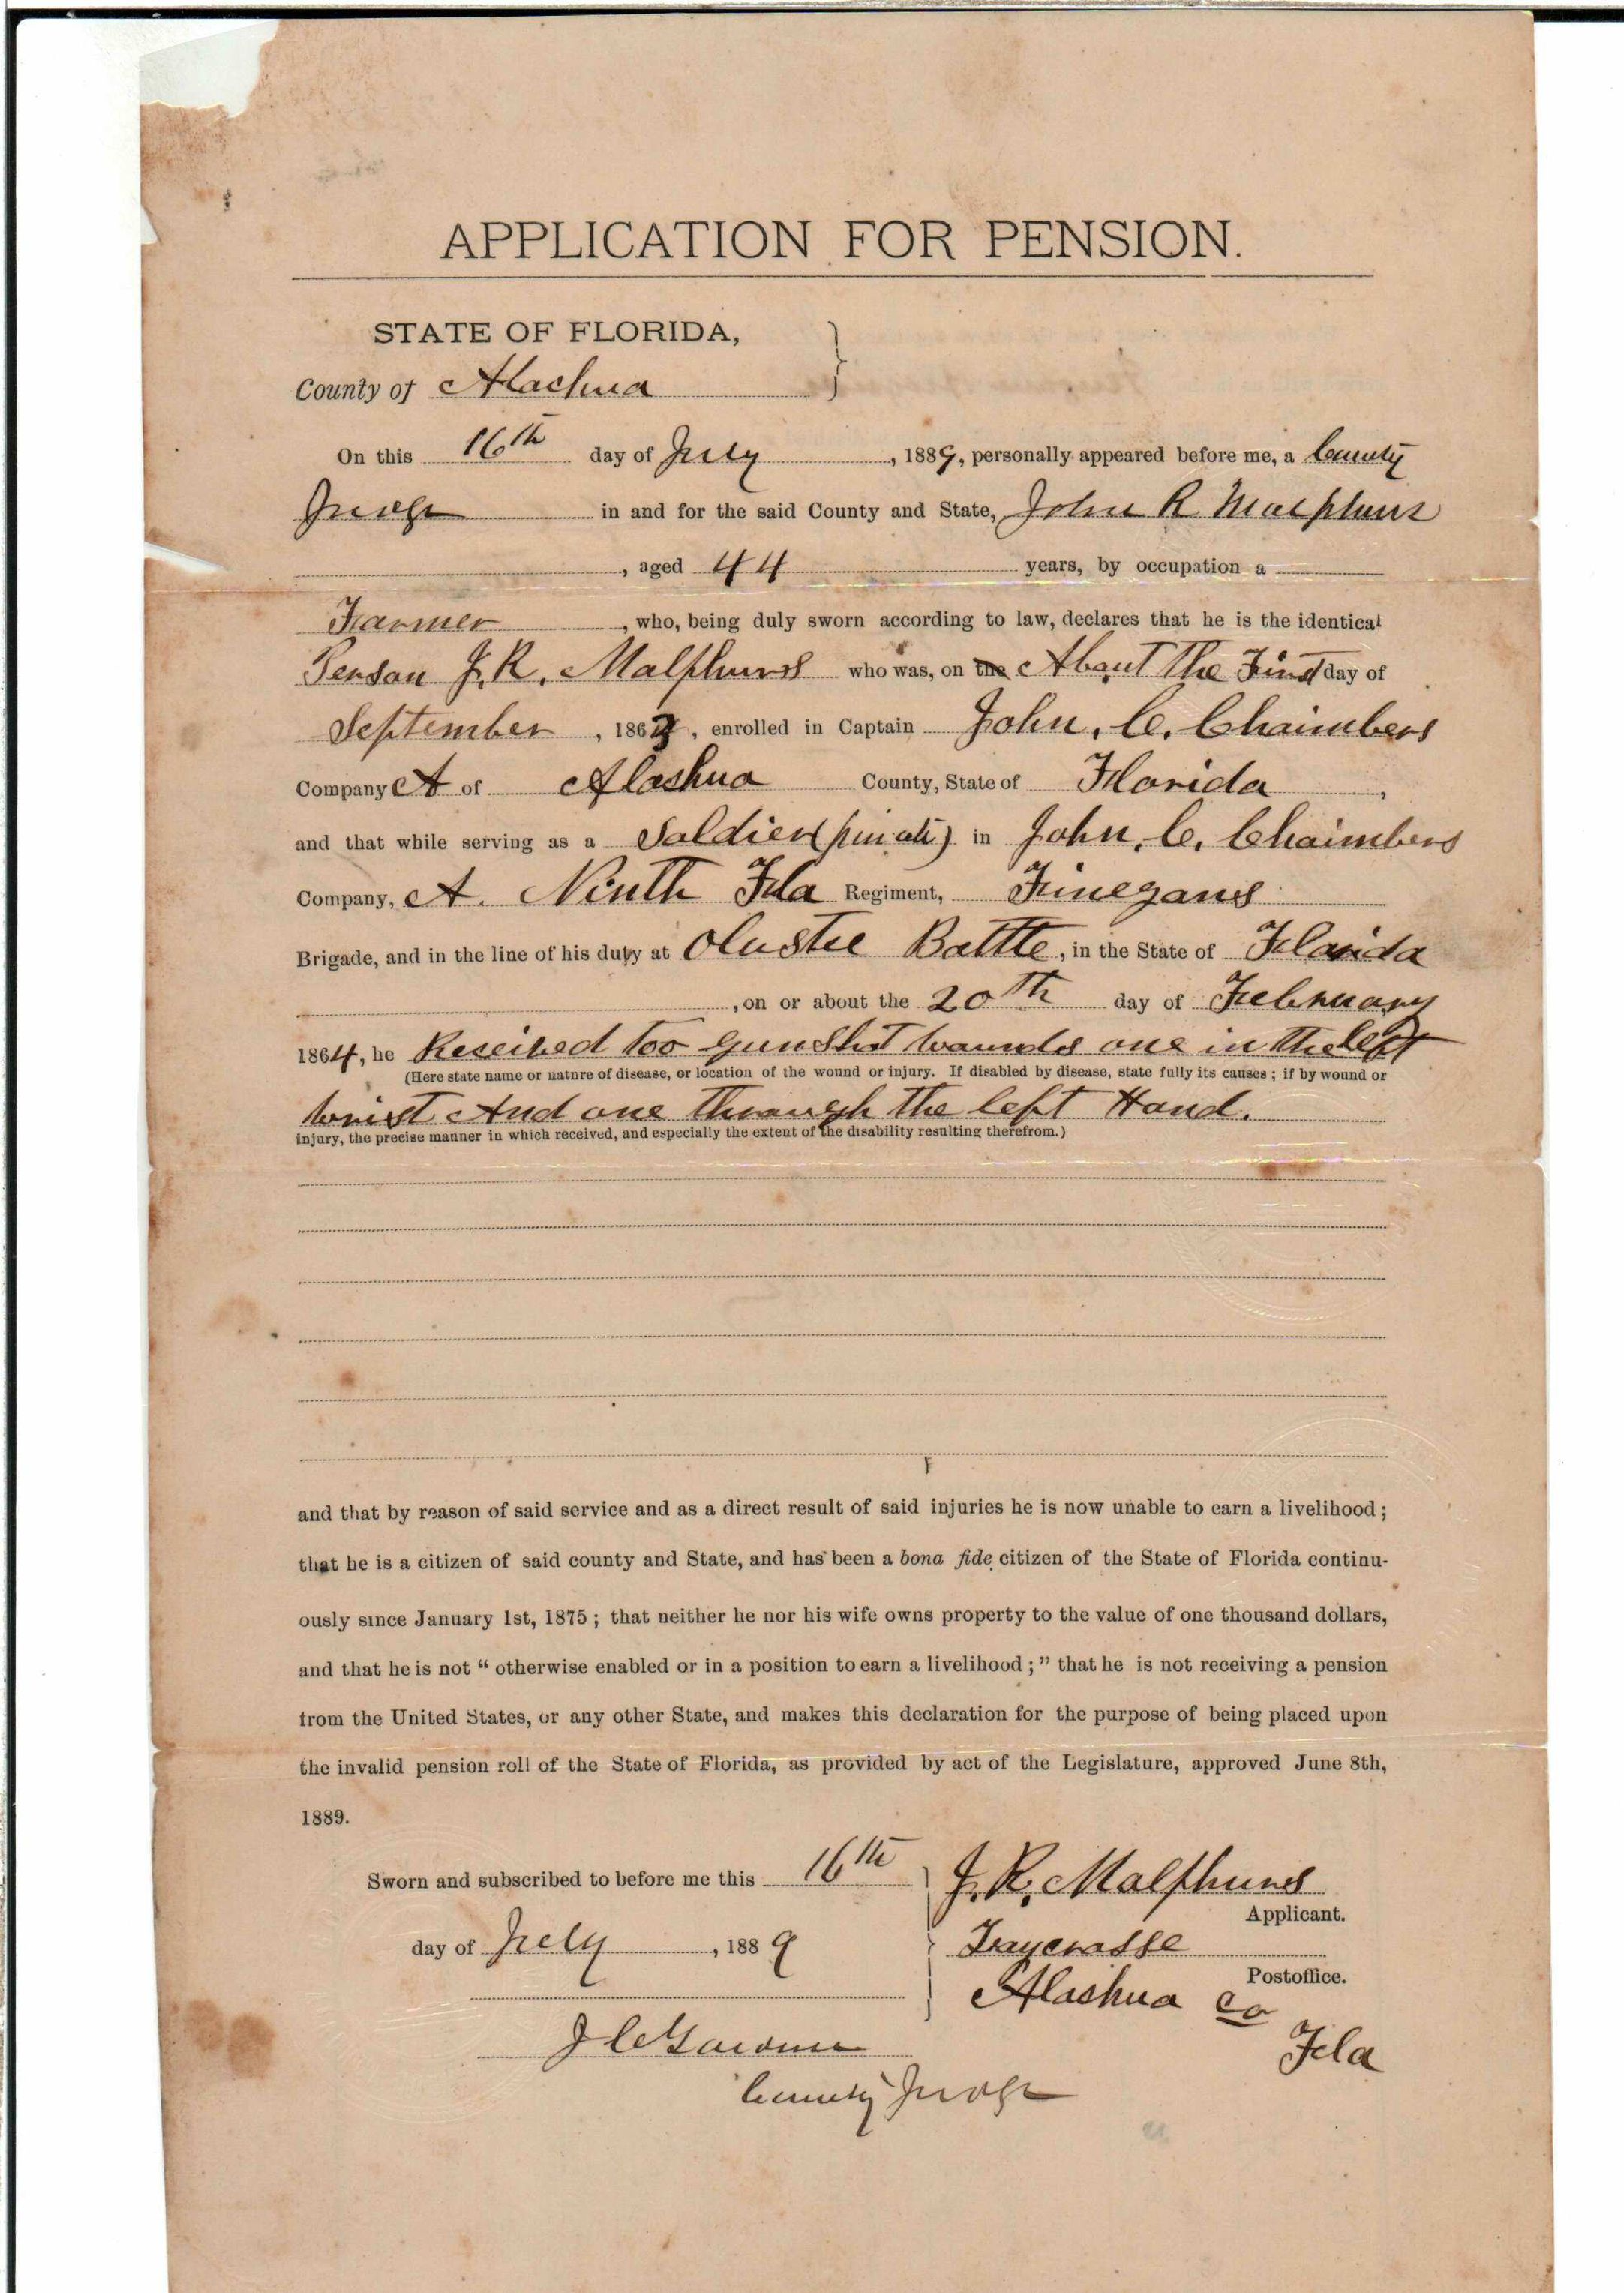 APPLICATION FOR PENSION.
STATE OF FLORIDA,
County of Alachua
On this 16th day of July, 1889, personally appeared before me, a County
Judge in and for the said County and State, John R Malphurs
, aged 44 years, by occupation a
Farmer, who, being duly sworn according to law, declares that he is the identical
Person J. R. Malphurs who was, on the About The First day of
September, 1863, enrolled in Captain John. C. Chaimbers
Company A of Alashua County, State of Florida,
and that while serving as a Soldier (private) in John. C. Chaimbers
Company, A. Ninth Fla Regiment, Finegans
Brigade, and in the line of his duty at Olustee Battle, in the State of Florida
, on or about the 20th day of February
1864, he Reseived Too gunshot wounds one in the left
(Here state name or nature of disease, or location of the wound or injury. If disabled by disease, state fully its causes; if by wound or
wrist And one through the left Hand.
injury, the precise manner in which received, and especially the extent of the disability resulting therefrom.)
and that by reason of said service and as a direct result of said injuries he is now unable to earn a livelihood;
that he is a citizen of said county and State, and has been a bona fide citizen of the State of Florida continu-
ously since January 1st, 1875; that neither he nor his wife owns property to the value of one thousand dollars,
and that he is not "otherwise enabled or in a position to earn a livelihood;" that he is not receiving a pension
from the United States, or any other State, and makes this declaration for the purpose of being placed upon
the invalid pension roll of the State of Florida, as provided by act of the Legislature, approved June 8th,
1889.
Sworn and subscribed to before me this 16th
J. R. Malphurs
Applicant.
day of July, 1889
Postoffice.
Alashua Co
Fla
County Judge